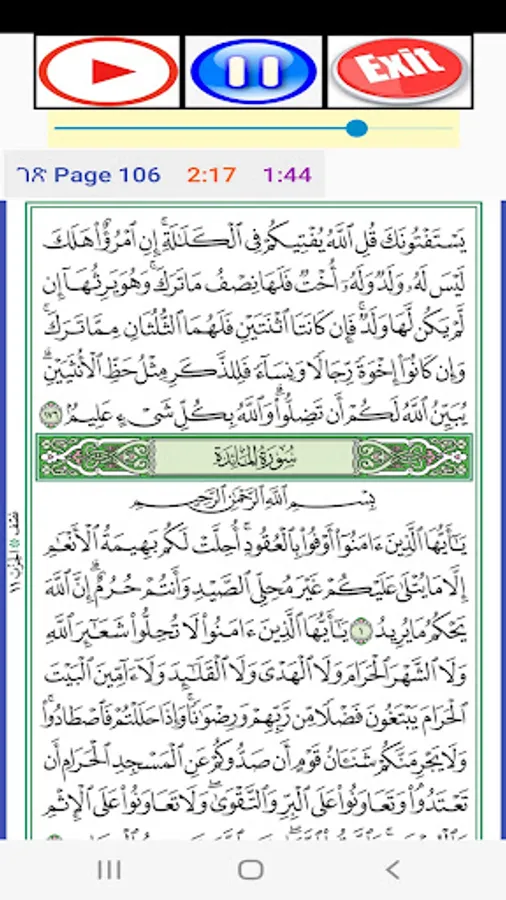 Exit
ገጽ Page 106 2:17 1:44
يَسْتَفْتُونَكَ قُلِ ٱللَّهُ يُفْتِيكُمْ فِى ٱلْكَلَـٰلَةِ ۚ إِنِ ٱمْرُؤٌا۟ هَلَكَ
لَيْسَ لَهُۥ وَلَدٌ وَلَهُۥٓ أُخْتٌ فَلَهَا نِصْفُ مَا تَرَكَ ۚ وَهُوَ يَرِثُهَآ إِن
لَّمْ يَكُن لَّهَا وَلَدٌ ۚ فَإِن كَانَتَا ٱثْنَتَيْنِ فَلَهُمَا ٱلثُّلُثَانِ مِمَّا تَرَكَ ۚ
وَإِن كَانُوٓا۟ إِخْوَةً رِّجَالًا وَنِسَآءً فَلِلذَّكَرِ مِثْلُ حَظِّ ٱلْأُنثَيَيْنِ ۗ
يُبَيِّنُ ٱللَّهُ لَكُمْ أَن تَضِلُّوا۟ ۗ وَٱللَّهُ بِكُلِّ شَىْءٍ عَلِيمٌۢ ١٧٦
سُورَةُ المَائِدَةِ
بِسْمِ ٱللَّهِ ٱلرَّحْمَـٰنِ ٱلرَّحِيمِ
يَـٰٓأَيُّهَا ٱلَّذِينَ ءَامَنُوٓا۟ أَوْفُوا۟ بِٱلْعُقُودِ ۚ أُحِلَّتْ لَكُم بَهِيمَةُ ٱلْأَنْعَـٰمِ
إِلَّا مَا يُتْلَىٰ عَلَيْكُمْ غَيْرَ مُحِلِّى ٱلصَّيْدِ وَأَنتُمْ حُرُمٌ ۗ إِنَّ ٱللَّهَ
يَحْكُمُ مَا يُرِيدُ ١ يَـٰٓأَيُّهَا ٱلَّذِينَ ءَامَنُوا۟ لَا تُحِلُّوا۟ شَعَـٰٓئِرَ ٱللَّهِ
وَلَا ٱلشَّهْرَ ٱلْحَرَامَ وَلَا ٱلْهَدْىَ وَلَا ٱلْقَلَـٰٓئِدَ وَلَآ ءَآمِّينَ ٱلْبَيْتَ
ٱلْحَرَامَ يَبْتَغُونَ فَضْلًا مِّن رَّبِّهِمْ وَرِضْوَٰنًا ۚ وَإِذَا حَلَلْتُمْ فَٱصْطَادُوا۟ ۚ
وَلَا يَجْرِمَنَّكُمْ شَنَـَٔانُ قَوْمٍ أَن صَدُّوكُمْ عَنِ ٱلْمَسْجِدِ ٱلْحَرَامِ أَن
تَعْتَدُوا۟ ۘ وَتَعَاوَنُوا۟ عَلَى ٱلْبِرِّ وَٱلتَّقْوَىٰ ۖ وَلَا تَعَاوَنُوا۟ عَلَى ٱلْإِثْمِ
نصف الحزب ١١